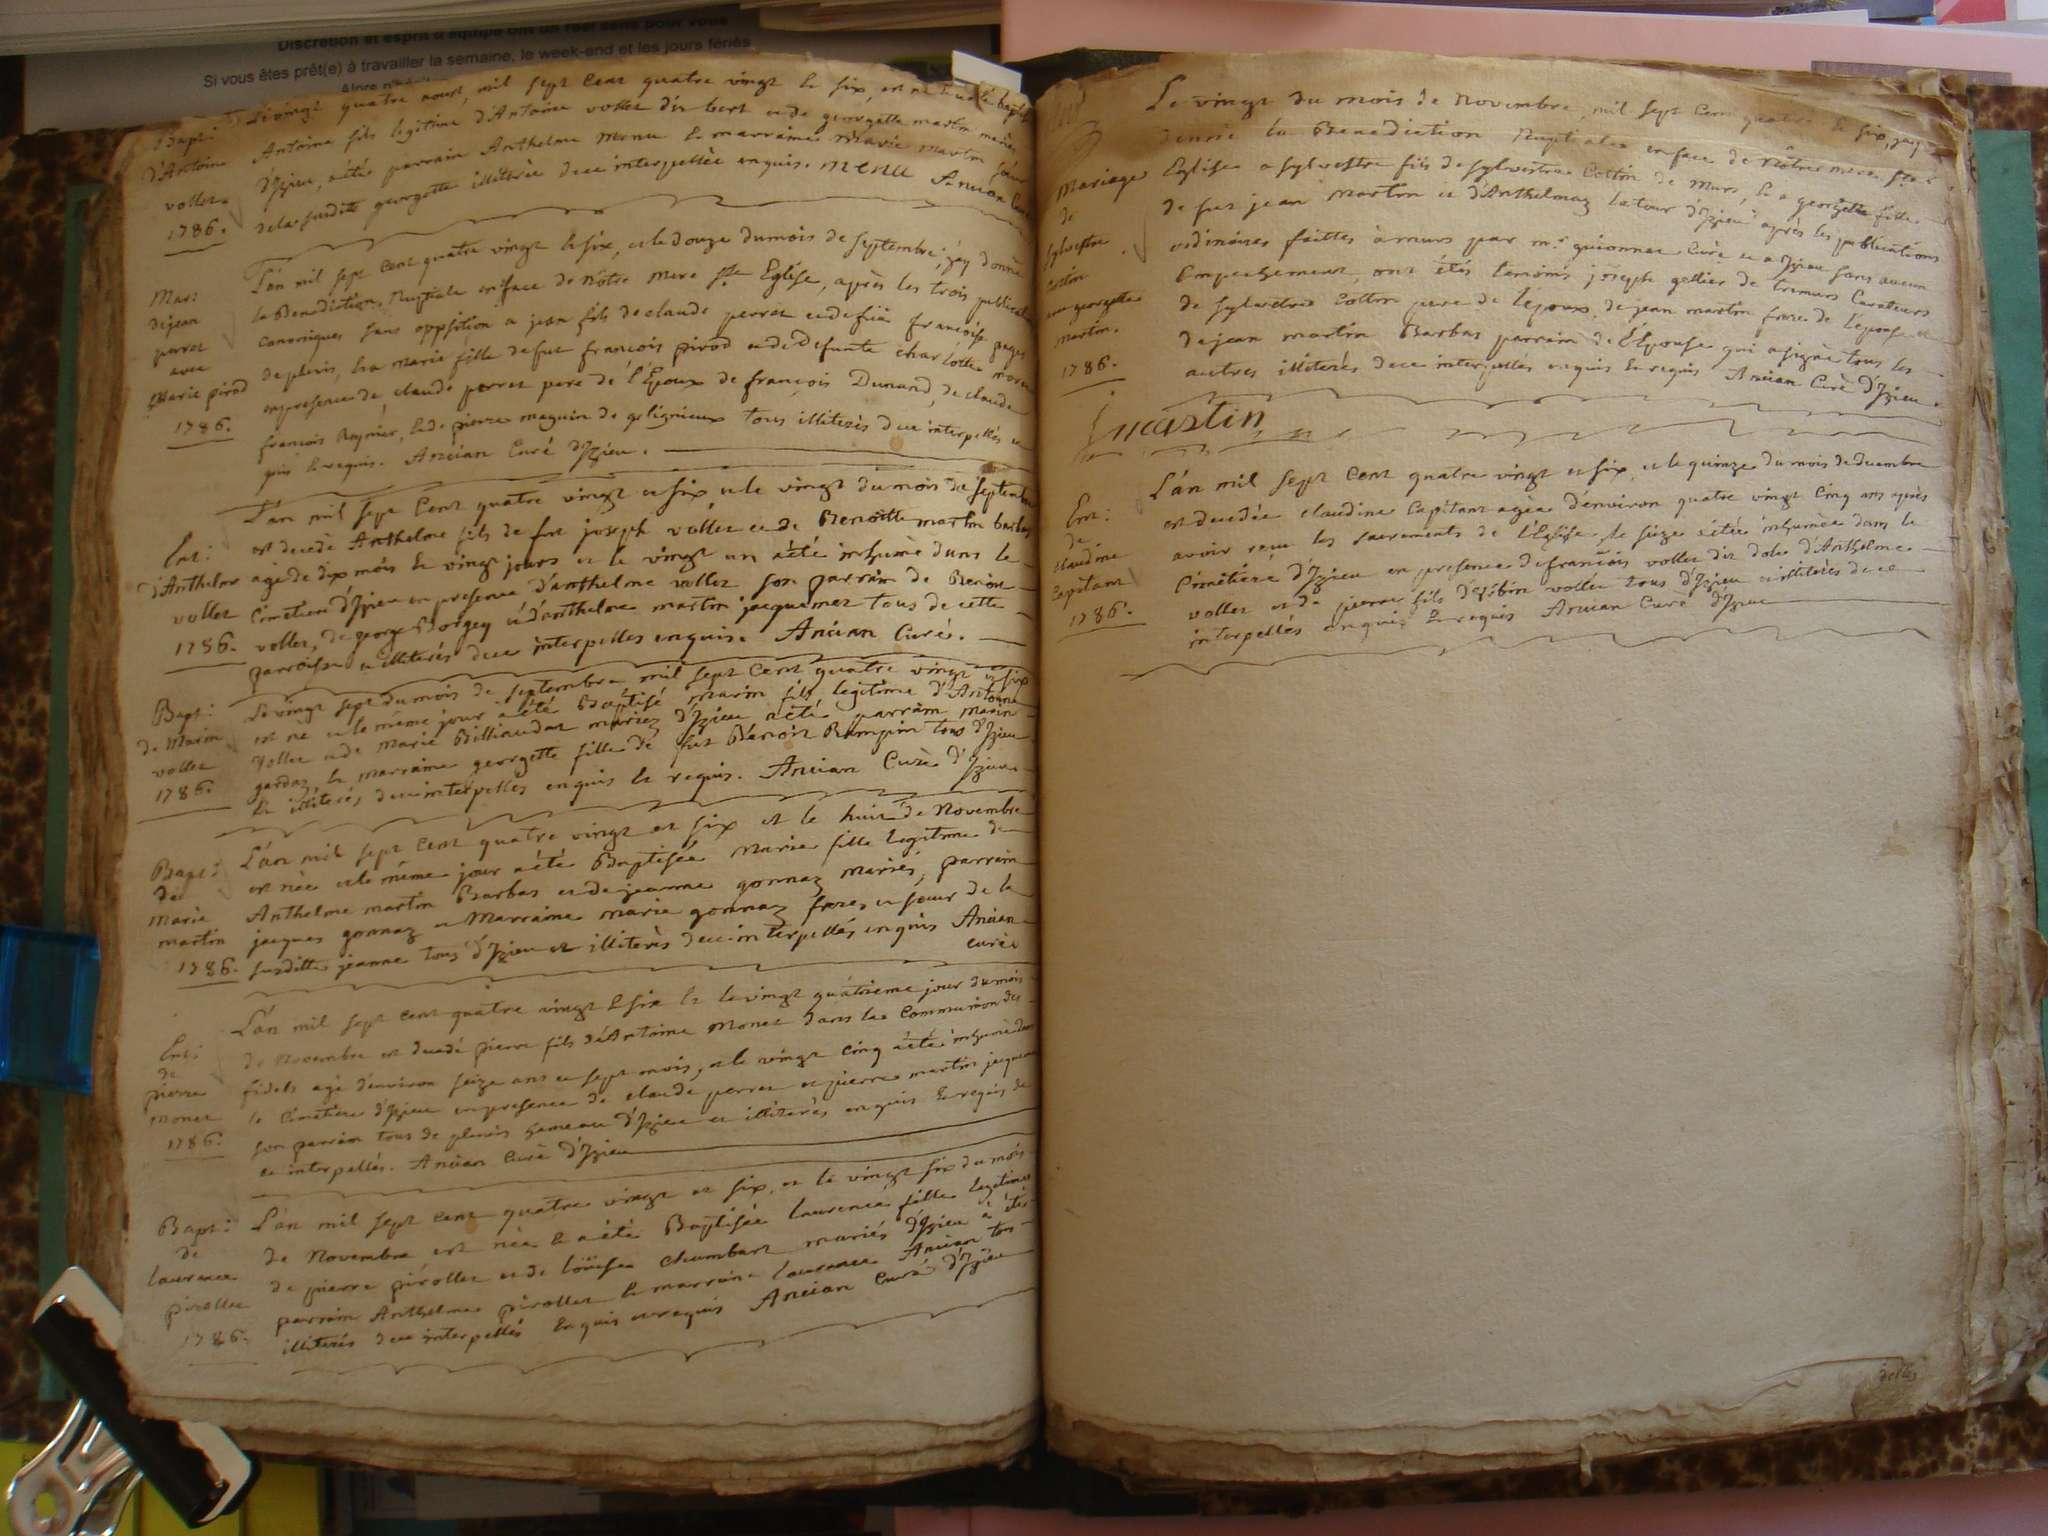 Discretion et esprit d'équipe ont un réel sens pour vous
Si vous êtes prêt(e) à travailler la semaine, le week-end et les jours fériés
Bapt:
d'Antoine
vollet
1786.
Le vingt quatre aoust, mil sept cent quatre vingt et six, est né et a été baptisé
Antoine fils legitime d'Antoine vollet dit bert et de georgette martin mariés
d'Izieu, a été parrain Anthelme Menu et marraine Marie Martin soeur
de la susditte georgette illiterée de ce interpellée enquis. Menu Ancian Curé
Mar:
de jean
perret
avec
Marie pirod
1786.
L'an mil sept cent quatre vingt et six, et le douze du mois de septembre, j'ay donné
la Benediction Nuptiale en face de Nôtre Mere Ste Eglise, après les trois publications
canoniques sans opposition a jean fils de claude perret et de francoise pugex
de plevis, et a marie fille de fut françois pirod et de Defunte charlotte
en presence de claude perret pere de l'Epoux de françois Dunand, de claude
françois Reynier, et de pierre maguin de gelignieux tous illiterés de ce interpellés
quis et requis. Ancian Curé d'Izieu.
Ent:
d'Anthelme
vollet
1786.
L'an mil sept cent quatre vingt et six et le vingt du mois de septembre
est decedé Anthelme fils de fut joseph vollet et de Benoitte martin barbas
agé de dix mois et vingt jours et le vingt un a été inhumé dans le
Cimetiere d'Izieu en presence d'anthelme vollet son parrain de Benoit
vollet, de george Borgey et d'anthelme martin jacquemet tous de cette
parroisse et illiterés de ce interpelles enquis. Ancian Curé.
Bapt:
de Marin
vollet
1786.
Le vingt sept du mois de septembre mil sept cent quatre vingt et six
est né et le même jour a été Baptisé marin fils legitime d'Antoine
vollet et de Marie Billiaudat mariez d'Izieu a été parrain marin
gardaz, et marraine georgette fille de fut Benoit Rampin tous d'Izieu
et illiterés de ce interpelles enquis et requis. Ancian Curé d'Izieu.
Bapt:
de
Marie
martin
1786.
L'an mil sept cent quatre vingt et six et le huit de Novembre
est née et le même jour a été Baptisée Marie fille legitime de
Anthelme martin Barbas et de jeanne gonnaz mariés, parrain
jacques gonnaz et Marraine marie gonnaz frere et soeur de la
susditte jeanne tous d'Izieu et illiterés de ce interpellés enquis Ancian
curé
Ent:
de
pierre
monet
1786.
L'an mil sept cent quatre vingt et six et le vingt quatrieme jour du mois
de Novembre est decedé pierre fils d'Antoine Monet dans la Communion des
fidels agé d'environ seize ans et sept mois, et le vingt cinq a été inhumé dans
le Cimetiere d'Izieu en presence de claude perret et pierre martin jacquemet
son parrain tous de plevis hameau d'Izieu et illiterés enquis et requis de
ce interpellés. Ancian Curé d'Izieu
Bapt:
de
laurence
pirollet
1786.
L'an mil sept cent quatre vingt et six, et le vingt six du mois
de Novembre est née et a été Baptisée laurence fille legitime
de pierre pirollet et de loüise chumbart mariés d'Izieu a été
parrain Anthelme pirollet et marraine laurence Ancian tous
illiterés de ce interpellés enquis et requis Ancian Curé d'Izieu
Mariage
de
sylvestre
cottin
avec georgette
martin.
1786.
Le vingt du mois de Novembre, mil sept cent quatre et six, j'ay
donné la Benediction Nuptiale en face de Nôtre mere Ste
Eglise a sylvestre fils de sylvestre Cottin de Murs, et a georgette fille
de fut jean Martin et d'Anthelmaz latour d'Izieu après les publications
ordinaires faittes à murs par mr. guionnet Curé et a Izieu sans aucun
Empechement, ont étés temoins joseph gellier de
de sylvestre Cottin pere de l'epoux de jean martin frere de l'epouse et
de jean martin Barbas parrain de l'Epouse qui a signé tous les
autres illiterés de ce interpellés enquis et requis Ancian Curé d'Izieu.
martin
Ent:
de
claudine
Capitant
1786.
L'an mil sept cent quatre vingt et six, et le quinze du mois de decembre
est decedée claudine Capitant agée d'environ quatre vingt cinq ans après
avoir reçu les sacrements de l'Eglise, le seize a étée inhumée dans le
Cimetiere d'Izieu en presence de francois vollet dit dode d'Anthelme
vollet et de pierre fils d'Aubin vollet tous d'Izieu et illiterés de ce
interpellés enquis et requis Ancian Curé d'Izieu